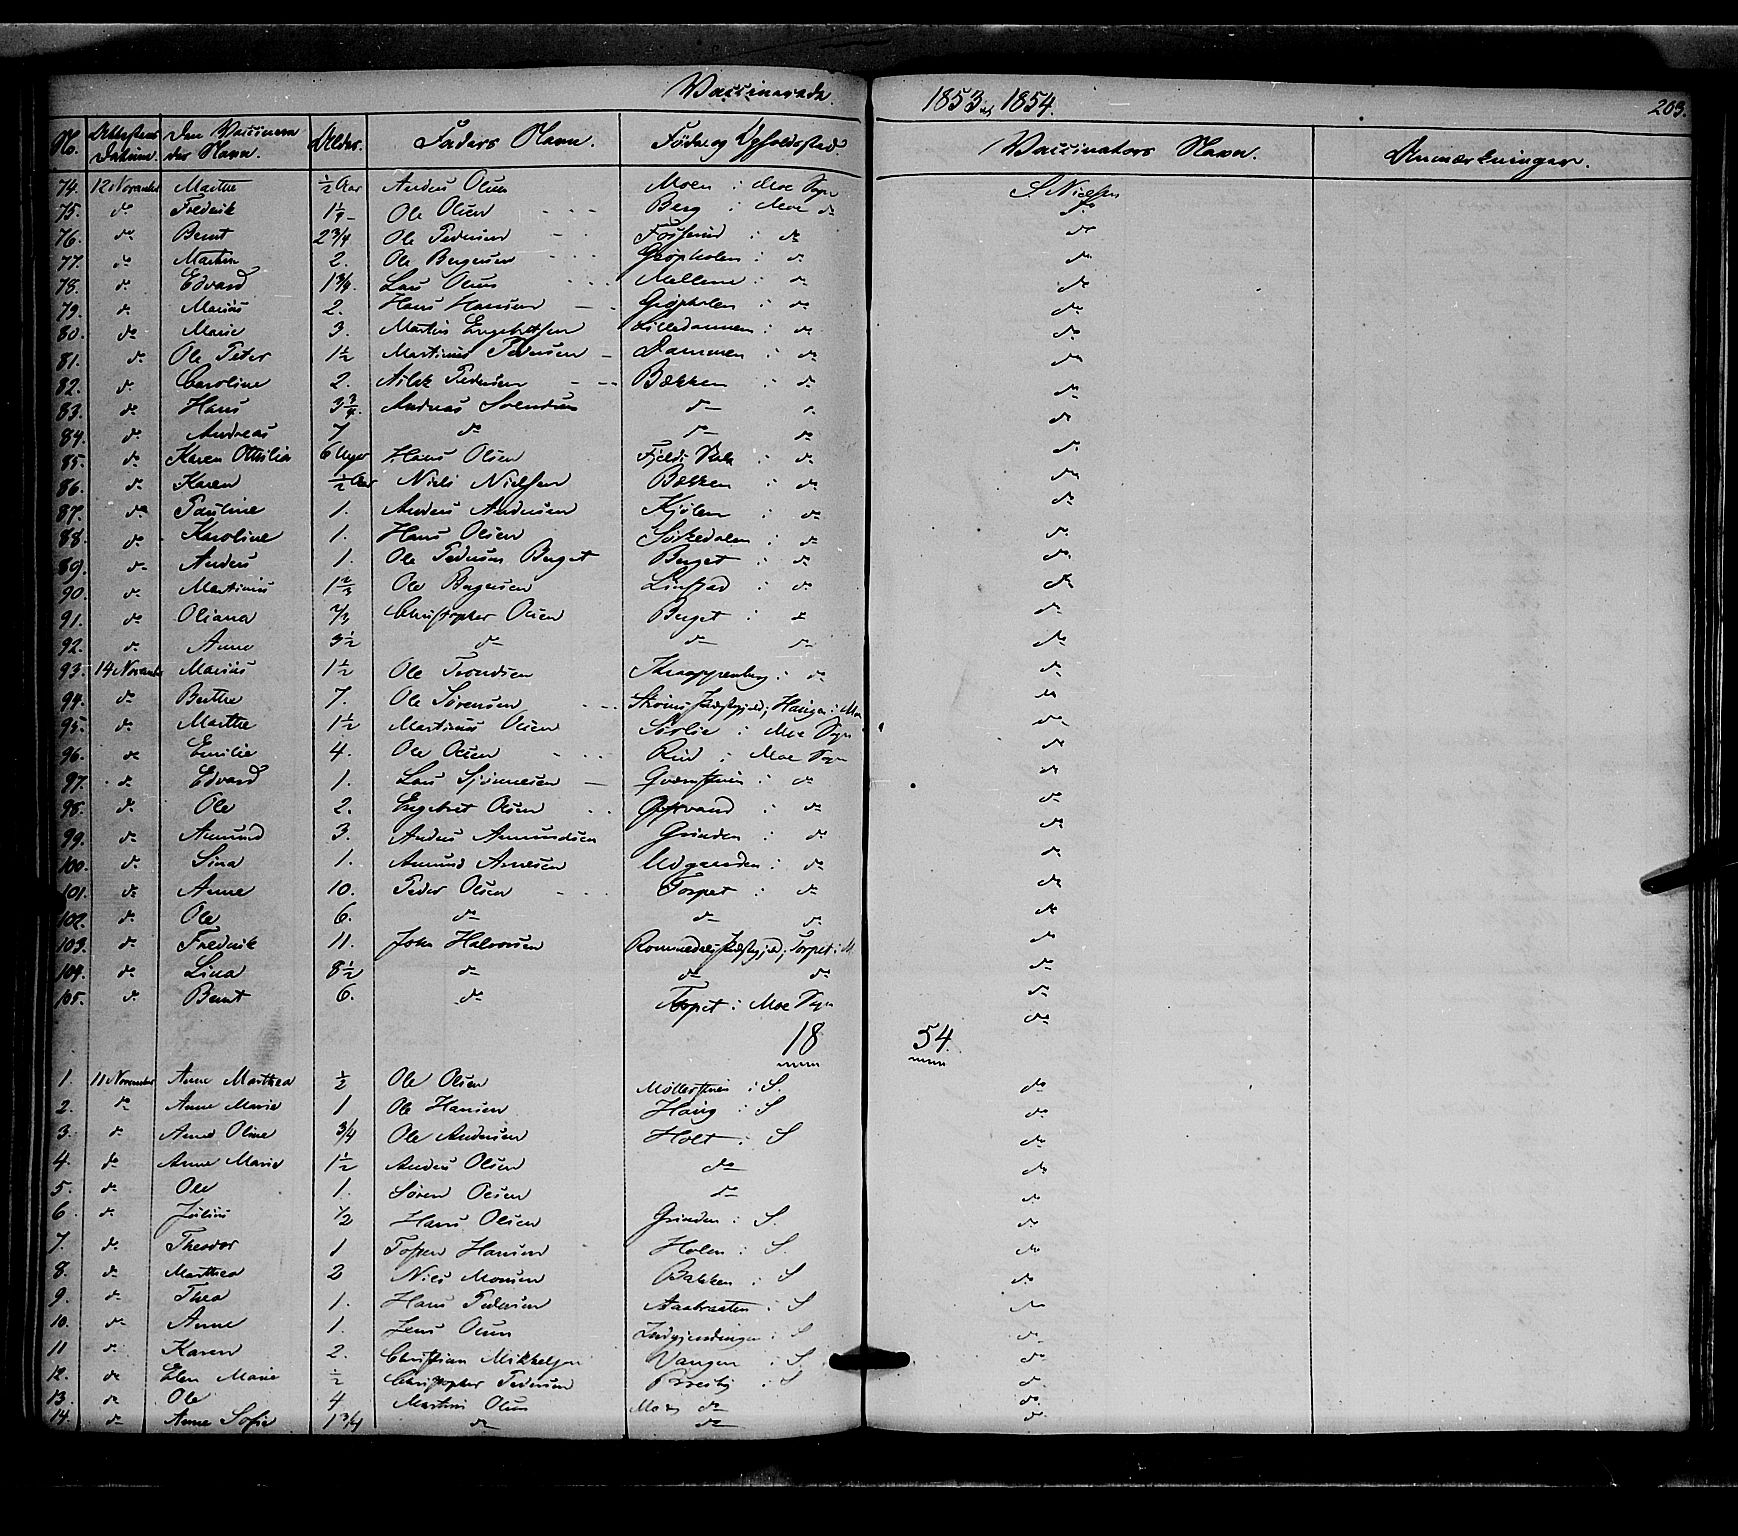 Vaccinerede 1853 og 1854. 203.
No. Attestens Datum. Den Vaccineredes Navn. Alder. Faders Navn. Føde og Opholdssted. Vaccinators Navn. Anmærkninger.
74. 12 November Marthe ½ Aar Anders Olsen Moen i Moe Sogn S. Nielsen
75. do Frederik Ole Olsen Berg i Moe do do
76. do Bernt 2 3/4 Ole Pedersen i do do
77. do 2. Ole Bergersen Gropholen i do do
78. do Edvard 1 3/4 Lars Olsen Mellem i do do
79. do Marius 2. Hans Hansen Gropholen i do do
80. do Marie 3. Martin Engebretsen Lilledammen i do do
81. do Ole Peter 1½ Martinus Pedersen Dammen i do do
82. do Caroline 2. Pedersen Bækken i do do
83. do Hans 3 3/4. Andreas Svendsen do do
84. do Andreas 7 do do do do
85. do Karen Othilia 6 Uger Hans Olsen i do do
86. do Karen ½ Aar Niels Nielsen Bækken i do do
87. do Pauline 1. Anders Andersen Kjølen i do do
88. do Karoline 1. Hans Olsen Sørkedalen i do do
89. do Anders 1. Ole Pedersen Berget Berget i do do
90. do Martinus Ole Bergersen i do do
91. do Oliana Christopher Olsen Berget i do do
92. do Anne 3½ do do do do
93. 14 November Marius 1½ Ole Trondsen Knappenberg i do do
94. do Berthe 7. Ole Sørensen Strøms Præstegjeld; Haugen i Moe do
95. do Marthe 1½ Martinus Olsen Sørlie i Moe Sogn do
96. do Emilie 4. Ole Olsen Rud i Moe Sogn do
97. do Edvard 1. Lars i do do
98. do Ole 2. Engebret Olsen i do do
99. do Amund 3. Anders Amundsen Grinden i do do
100. do Sina 1. Amund Arnesen i do do
101. do Anne 10. Peder Olsen Torpet i do do
102. do Ole 6. do do do do
103. do Frederik 11. John Halvorsen Romedals Præstegjeld; Torpet i M. do
104. do Lina 8½ do do do do
105. do Bernt 6. do Torpet i Moe Sogn do
18 54.
1. 11 November Anne Marthea ½ Ole Olsen i S. do
2. do Anne Marie 1 Ole Hansen Haug i S do
3. do Anne Oline 3/4 Ole Andersen Holt i S do
4. do Anne Marie 1½ Anders Olsen do do
5. do Ole 1. Søren Olsen do do
6. do Julius ½ Hans Olsen Grinden i S. do
7. do Theodor 1 Hansen Holen i S. do
8. do Marthea 2 Niels Monsen Bakken i S do
9. do Thea 1. Hans Pedersen Aabraaten i S do
10. do Anne 1. Jens Olsen i S do
11 do Karen 2. Christian Mikkelsen Vangen i S. do
12. do Elen Marie ½ Christopher Pedersen i S do
13. do Ole 4 Martin Olsen do do
14. do Anne Sofie 1 3/4 do do do